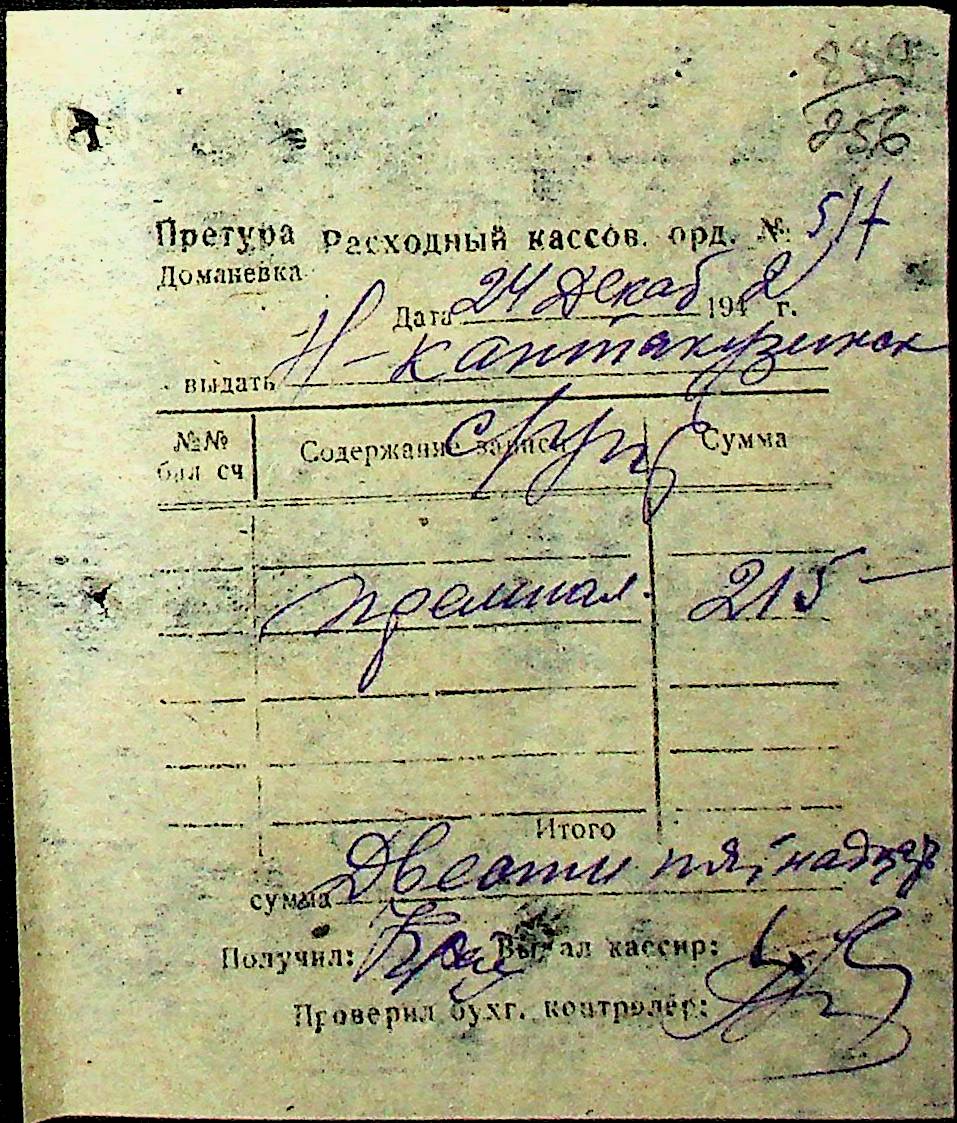 889
256
Претура Расходный кассов. орд. № 517
Доманевка
Дата 24 Декаб 1942 г.
выдать Н-Кантакузинск
№№ бал сч Содержание записи Сумма
премиал. 215 —
Итого
сумма Двести пятнадцать
Получил: Выдал кассир:
Проверил бухг. контролер: